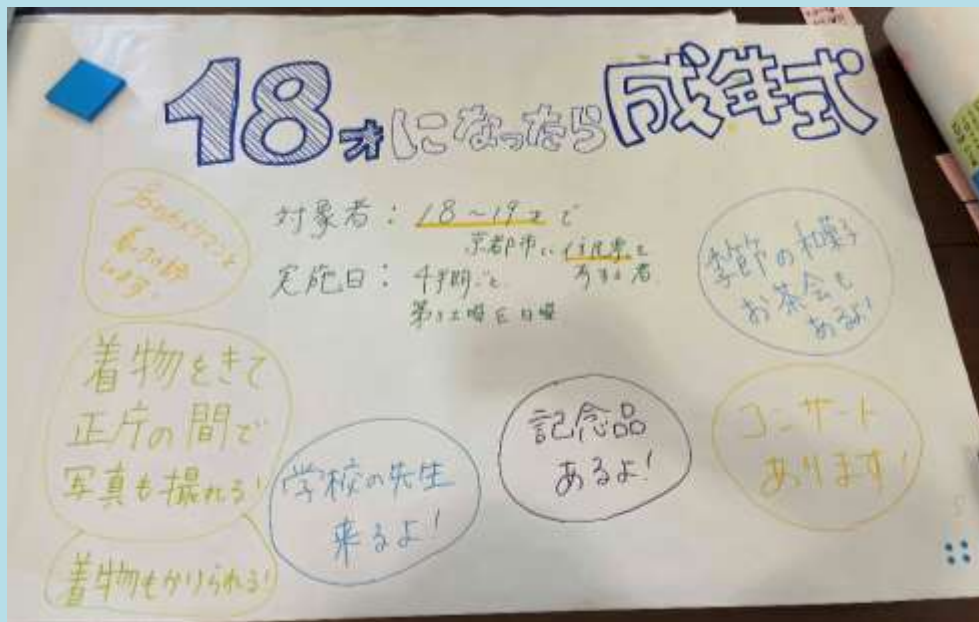 18才になったら成年式
対象者：18〜19才で
京都市に住民票を
有する者
実施日：4半期ごと
第3土曜と日曜
季節の和菓子
お茶会も
あるよ！
着物をきて
正庁の間で
写真も撮れる！
着物もかりられる！
学校の先生
来るよ！
記念品
あるよ！
コンサート
あります！